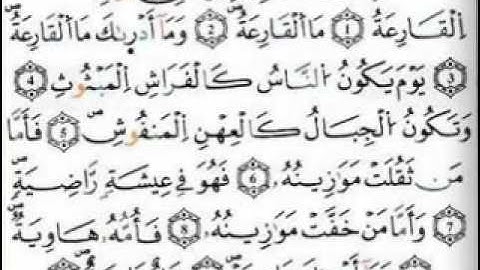 اَ۬لْقَارِعَةُ 1 مَا اَ۬لْقَارِعَةُ 2 وَمَآ أَدْر۪ىٰكَ مَا اَ۬لْقَارِعَةُ
3 يَوْمَ يَكُونُ اُ۬لنَّاسُ كَالْفَرَاشِ اِ۬لْمَبْثُوثِ 4
وَتَكُونُ اُ۬لْجِبَالُ كَالْعِهْنِ اِ۬لْمَنفُوشِ 5 فَأَمَّا
مَن ثَقُلَتْ مَوَٰزِينُهُۥ 6 فَهُوَ فِے عِيشَةٖ رَّاضِيَةٖ
7 وَأَمَّا مَنْ خَفَّتْ مَوَٰزِينُهُۥ 8 فَأُمُّهُۥ هَاوِيَةٞ